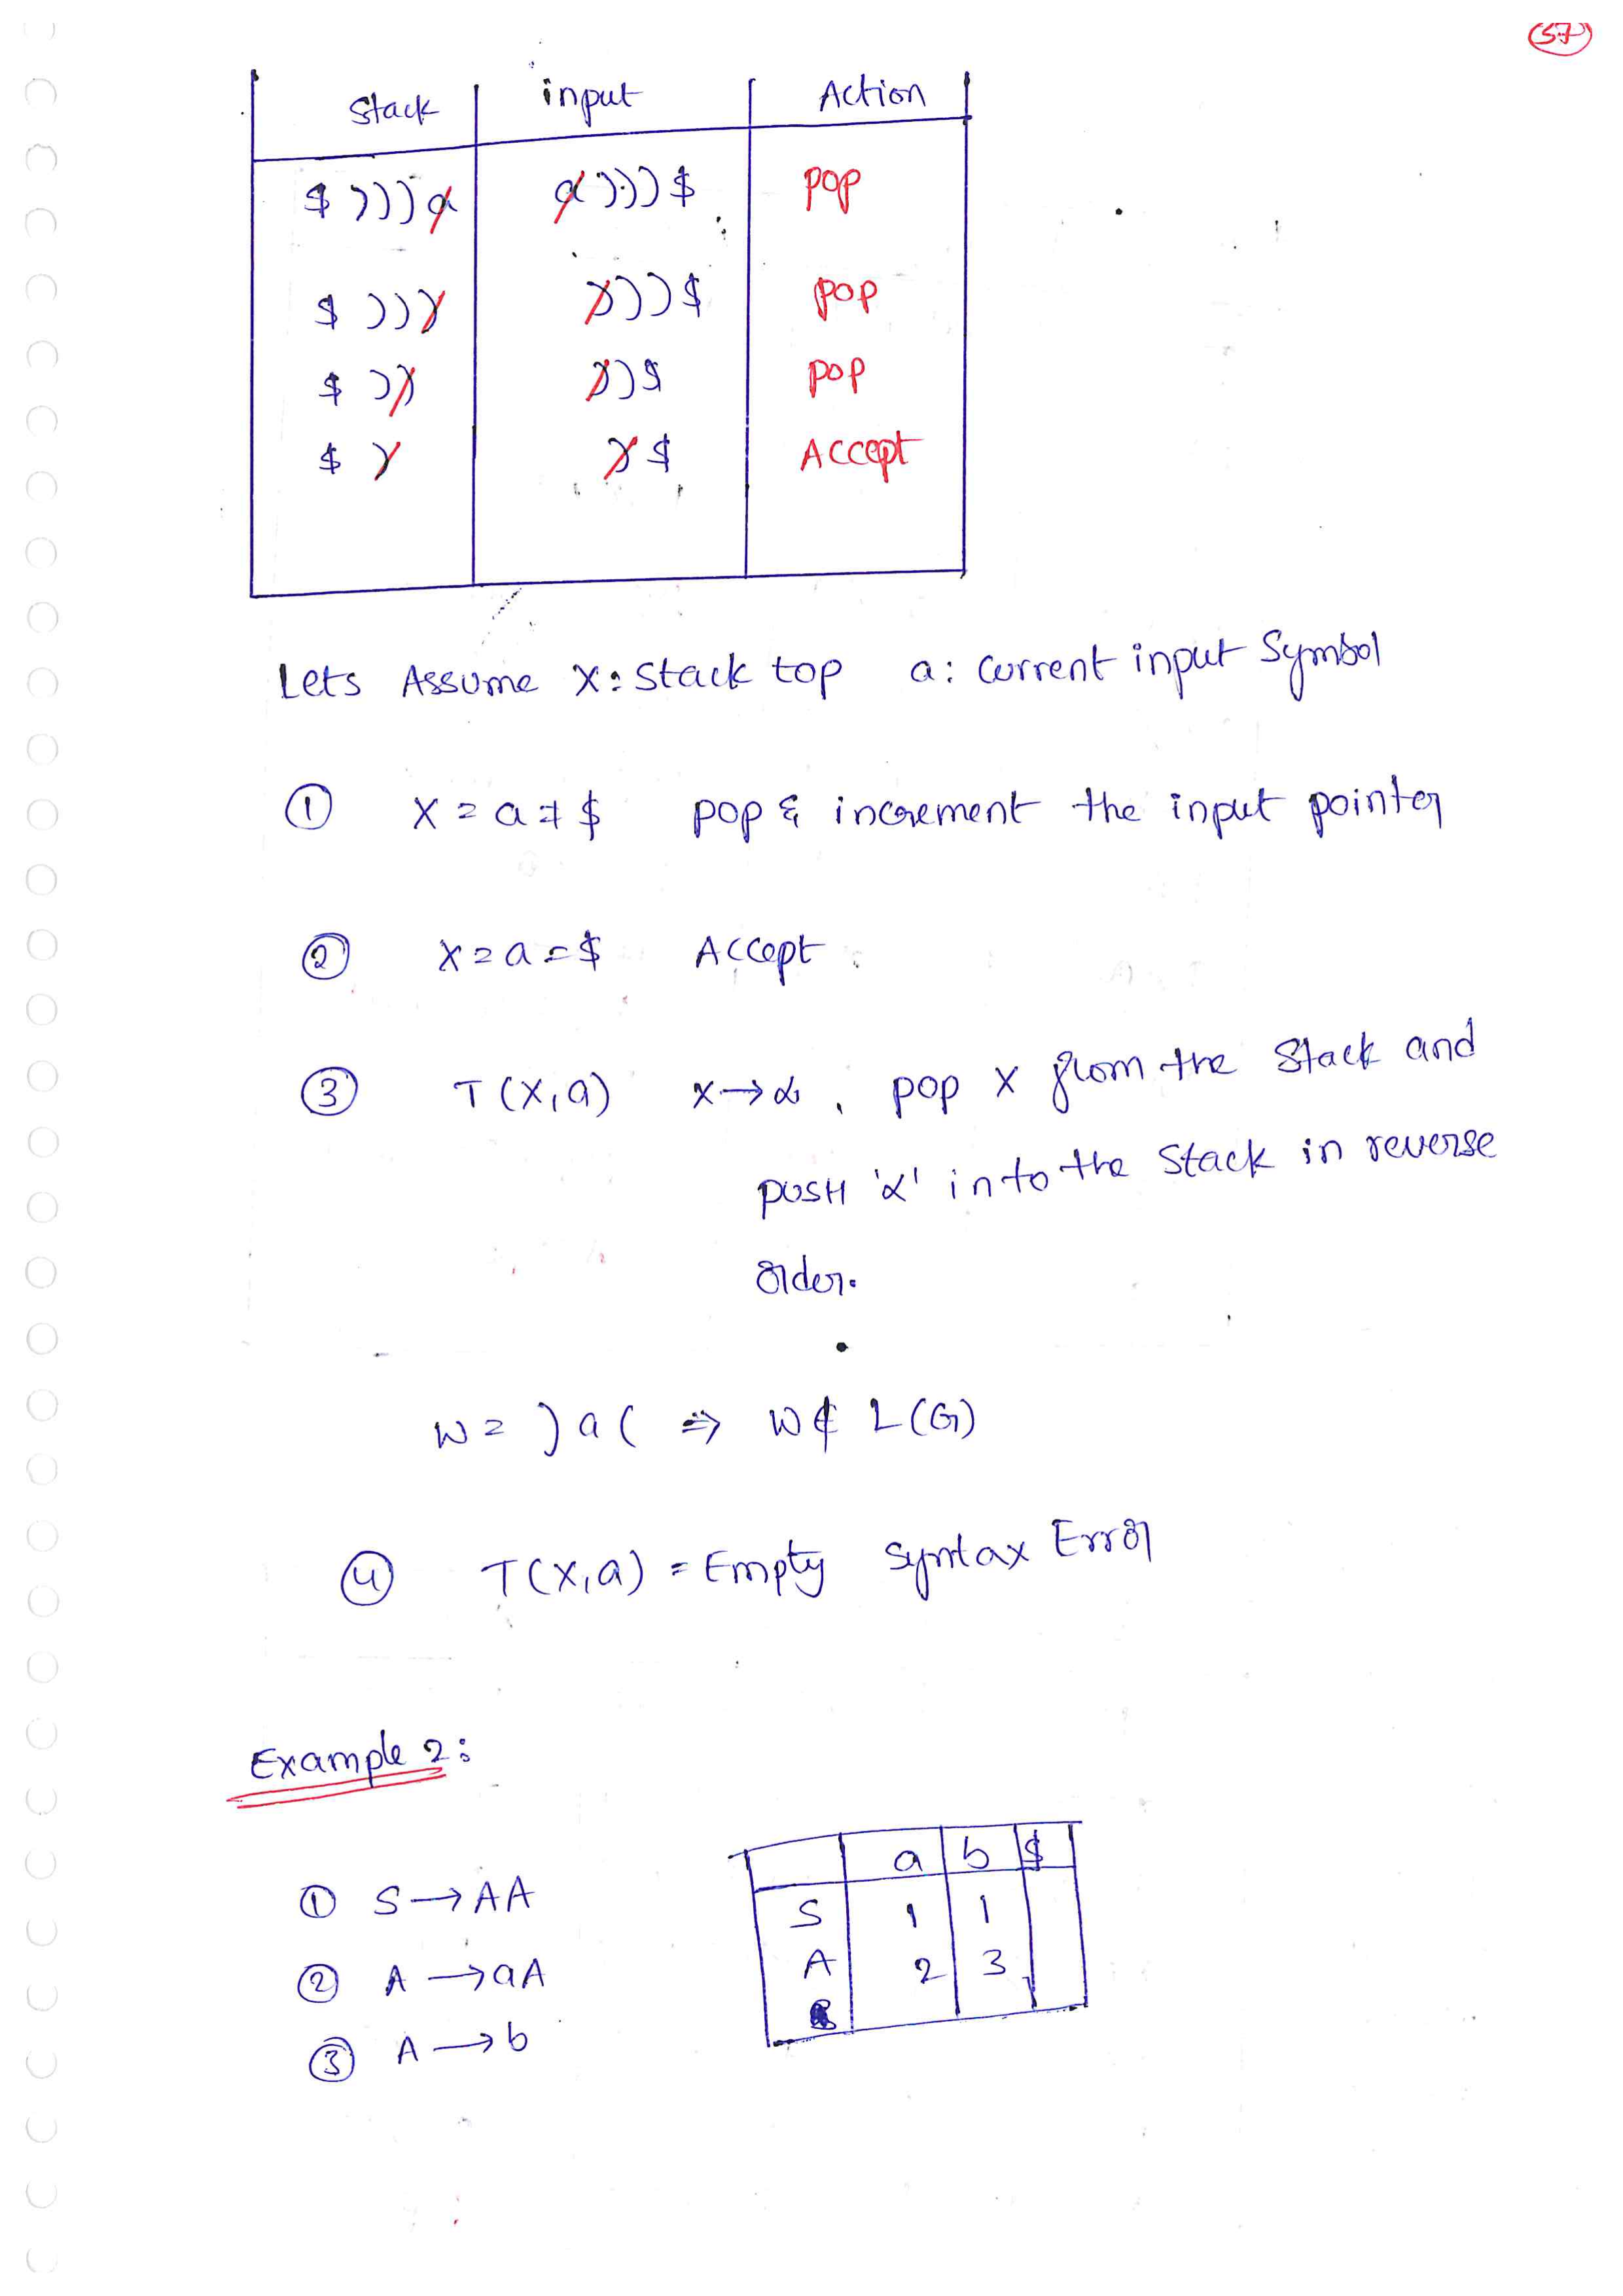 57
Stack input Action
$)))a a)))$ pop
$))) )))$ pop
$)) ))$ pop
$) )$ Accept
Lets Assume X: Stack top a: Current input Symbol
① X = a ≠ $ pop & increment the input pointer
② X = a = $ Accept
③ T(X,a) X→α, pop X from the Stack and
PUSH 'α' into the Stack in reverse
order.
W = )a( ⇒ W ∉ L(G)
④ T(X,a) = Empty Syntax Error
Example 2:
a b $
① S→AA S 1 1
② A→aA A 2 3
③ A→b